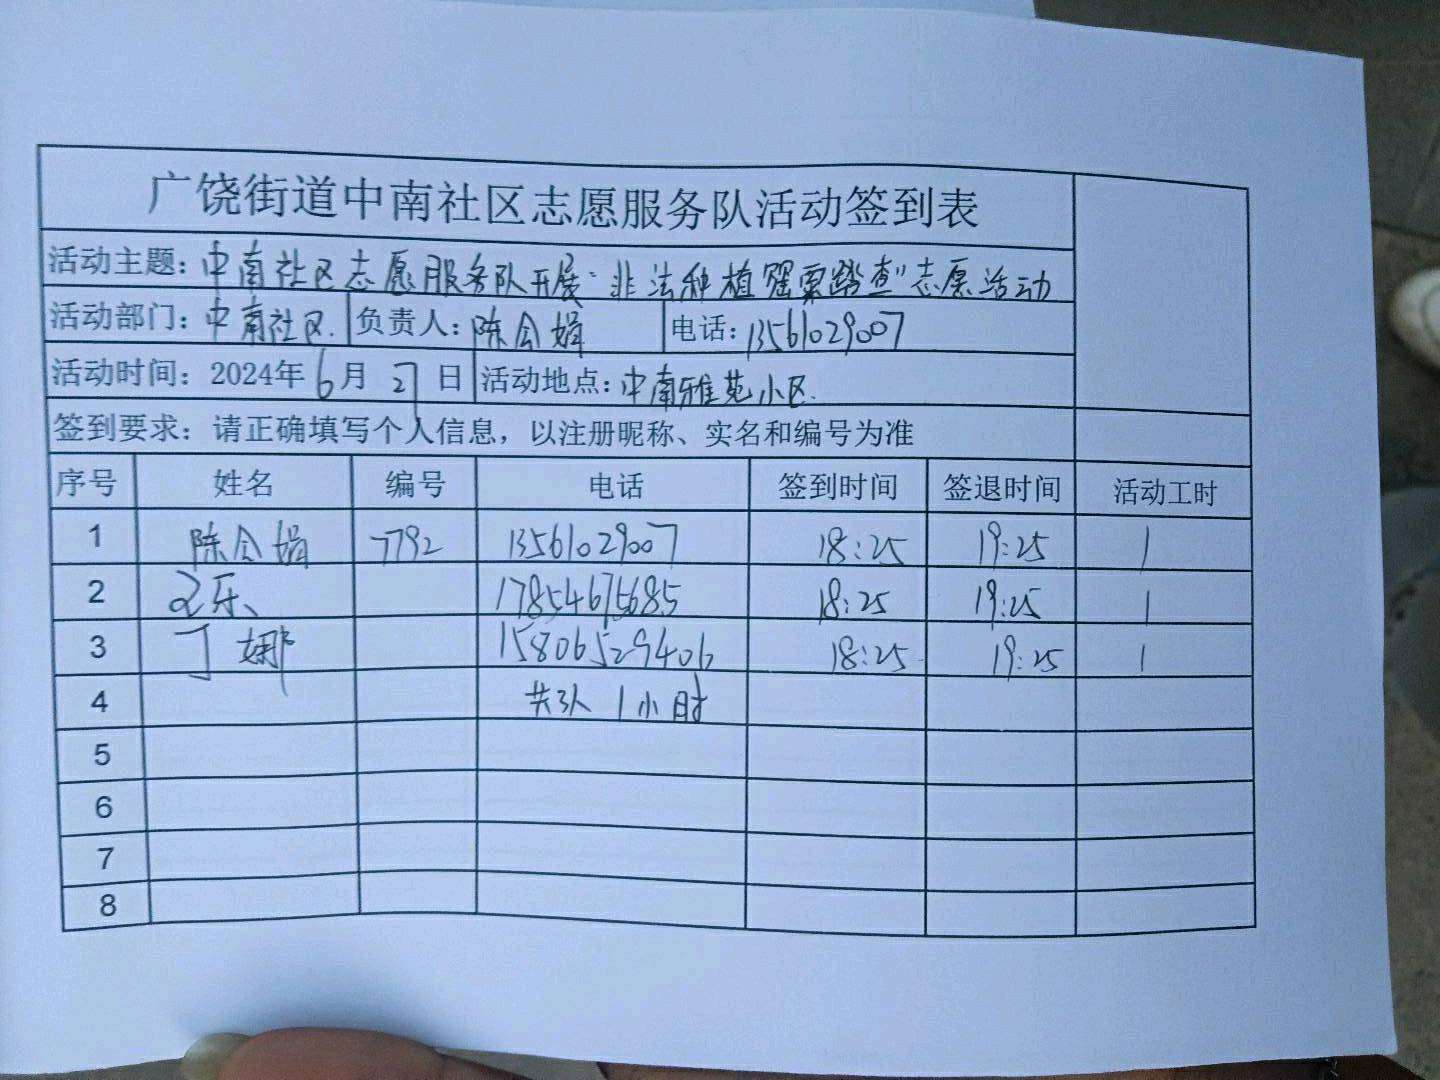 广饶街道中南社区志愿服务队活动签到表
活动主题：中南社区志愿服务队开展“非法种植罂粟踏查”志愿活动
活动部门：中南社区. 负责人：陈会娟 电话：13561029007
活动时间：2024年6月27日 活动地点：中南雅苑小区.
签到要求：请正确填写个人信息，以注册昵称、实名和编号为准
序号 姓名 编号 电话 签到时间 签退时间 活动工时
1 陈会娟 7792 13561029007 18:25 19:25 1
2 17854675685 18:25 19:25 1
3 丁娜 15806529406 18:25 19:25 1
4 共3人 1小时
5
6
7
8